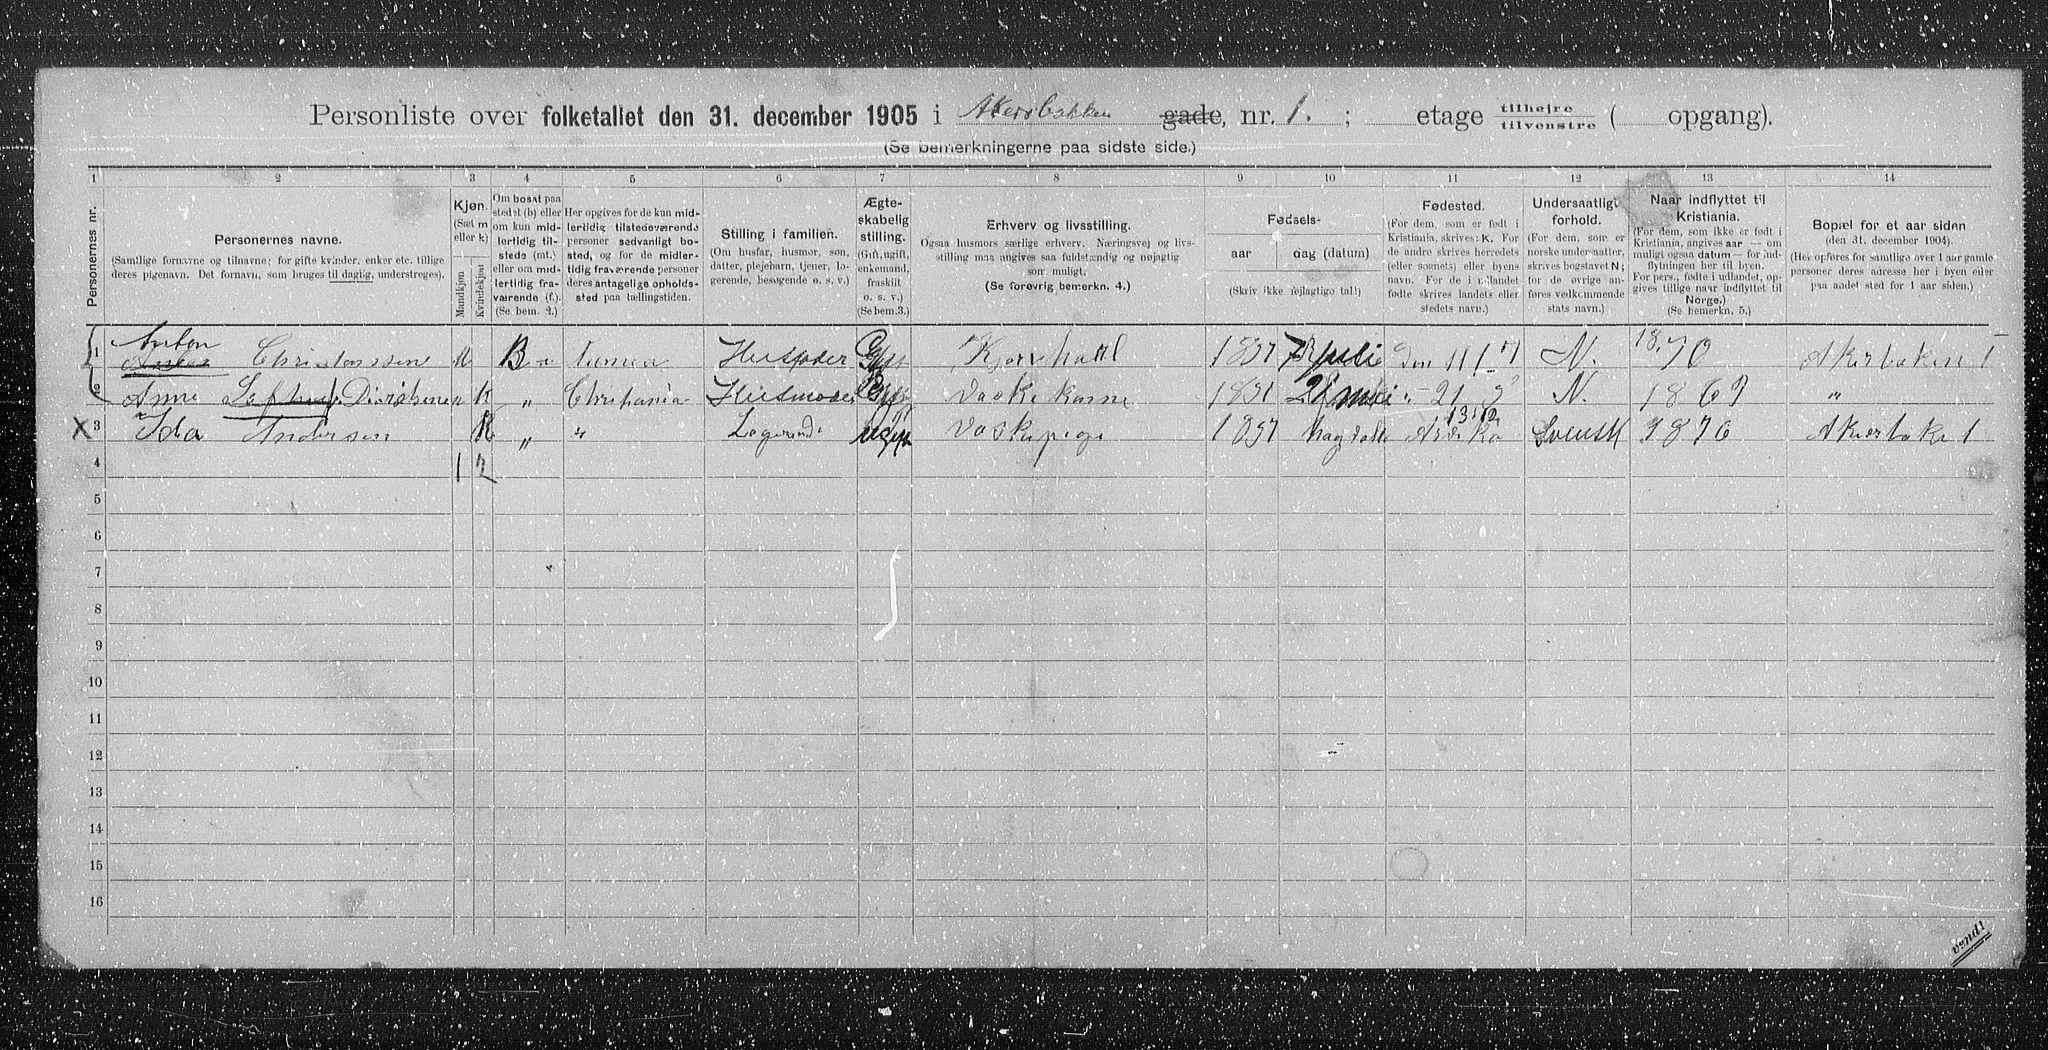 Personliste over folketallet den 31. december 1905 i Akersbakken gade, nr. 1. ; etage tilhøjre / tilvenstre ( opgang).
(Se bemerkningerne paa sidste side.)
1 2 3 4 5 6 7 8 9 10 11 12 13 14
Personernes nr.
Personernes navne.
(Samtlige fornavne og tilnavne; for gifte kvinder, enker etc. tillige
deres pigenavn. Det fornavn, som bruges til daglig, understreges).
Kjøn.
(Sæt m
eller k)
Mandkjøn
Kvindekjøn
Om bosat paa
stedet (b) eller
om kun mid-
lertidig til-
stede (mt.)
eller om mid-
lertidig fra-
værende (f.).
(Se bem. 2.)
Her opgives for de kun mid-
lertidig tilstedeværende
personer sedvanligt bo-
sted, og for de midler-
tidig fraværende personer
deres antagelige opholds-
sted paa tællingstiden.
Stilling i familien.
(Om husfar, husmor, søn,
datter, plejebarn, tjener, lo-
gerende, besøgende o. s. v.)
Ægte-
skabelig
stilling.
(Gift, ugift,
enkemand,
fraskilt
o. s. v.)
(Se bem.3.)
Erhverv og livsstilling.
Ogsaa husmors særlige erhverv. Næringsvej og livs-
stilling maa angives saa fuldstændig og nøjagtig
som muligt.
(Se forøvrig bemerkn. 4.)
Fødsels-
aar dag (datum)
(Skriv ikke fejlagtige tal!)
Fødested.
(For dem, som er født i
Kristiania, skrives: K. For
de andre skrives herredets
(eller sognets) eller byens
navn. For de i udlandet
fødte skrives landets eller
stedets navn.)
Undersaatligt
forhold.
(For dem, som er
norske undersaatter,
skrives bogstavet N;
for de øvrige an-
føres vedkommende
stats navn.)
Naar indflyttet til
Kristiania.
(For dem, som ikke er født i
Kristiania, angives aar — om
muligt ogsaa datum — for ind-
flytningen her til byen.
For pers., fødte i udlandet, op-
gives tillige naar indflyttet til
Norge.)
(Se bemerkn. 5.)
Bopæl for et aar siden
(den 31. december 1904).
(Her opføres for samtlige over 1 aar gamle
personer deres adresse her i byen eller
paa andet sted for 1 aar siden.)
Anton
1 Christenssen M B Husfader Gift 1837 7 juli N. 18.70 Akersbaken 1
2 Anna K „ Christiania Husmoder Gift Vaskekone 1831 N. 1869 „
X 3 Ida Andersen K „ „ Logerende Ugift Vaskepige 1857 Svensk 1876 Akersbake 1
4 1 2
5
6
7
8
9
10
11
12
13
14
15
16
vend!